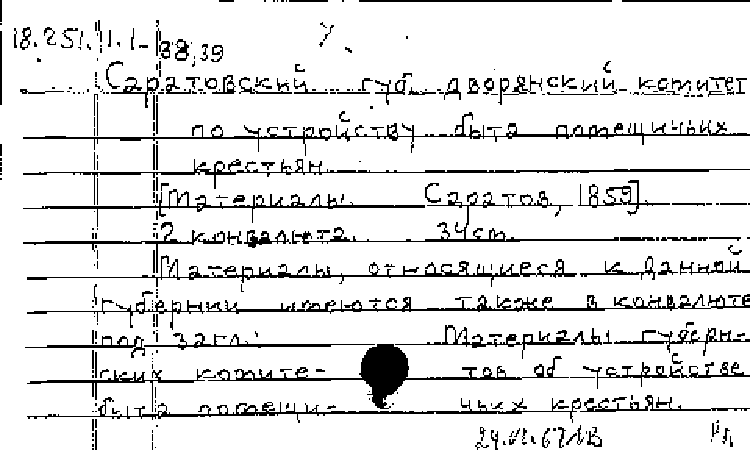 18.251.1.1-38,39
Саратовский губ. дворянский комитет
по устройству быта помещичьих
крестьян.
[Материалы. Саратов, 1859].
2 конволюта. 34 см.
Материалы, относящиеся к данной
губернии имеются также в конволюте
под загл.: Материалы губерн-
ских комите- тов об устройстве
быта помещи- чьих крестьян.